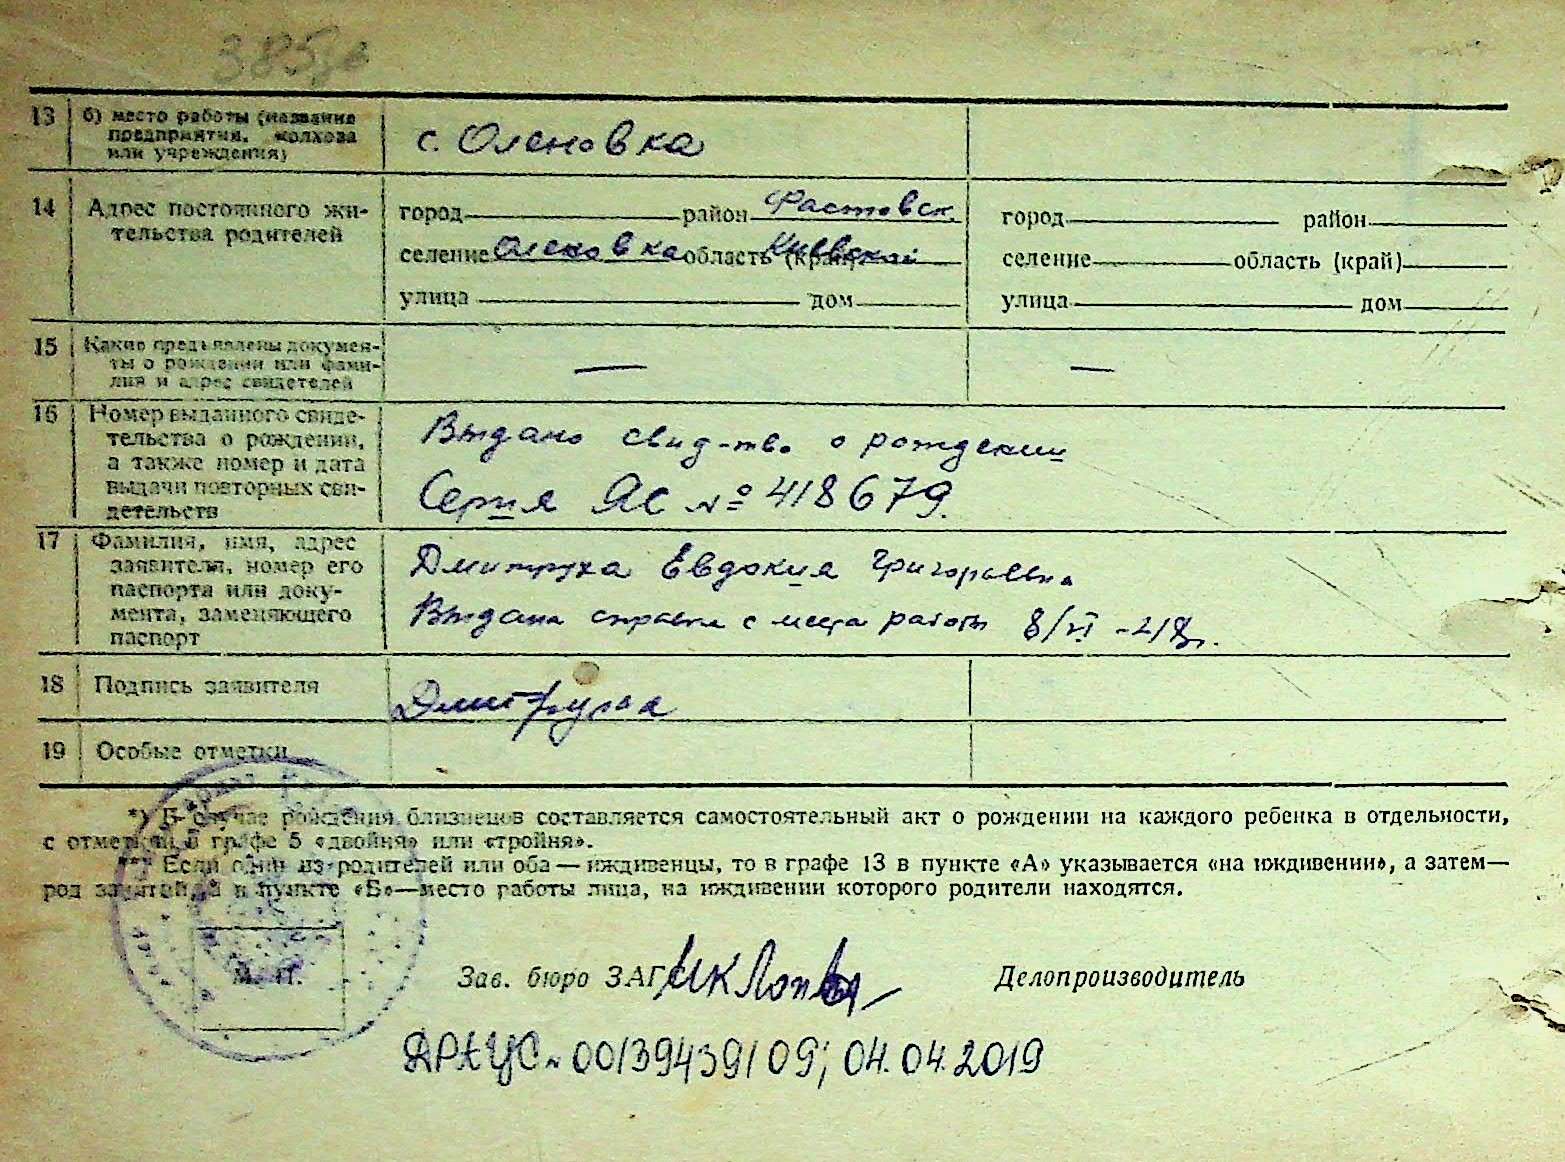 13 б) место работы (название
предприятия, колхоза
или учреждения)
с. Оленовка
14 Адрес постоянного жи-
тельства родителей
город район Фастовск.
селение Оленовка область (край) Киевская
улица дом
город район
селение область (край)
улица дом
15 Какие предъявлены докумен-
ты о рождении или фами-
лия и адрес свидетелей
—
—
16 Номер выданного свиде-
тельства о рождении,
а также номер и дата
выдачи повторных сви-
детельств
Выдано свид-тво о рождении
Серия ЯС № 418679.
17 Фамилия, имя, адрес
заявителя, номер его
паспорта или доку-
мента, заменяющего
паспорт
Дмитруха Евдокия Григорьевна
Выдана справка с места работы 8/VI
18 Подпись заявителя
Дмитруха
19 Особые отметки
*) В случае рождения близнецов составляется самостоятельный акт о рождении на каждого ребенка в отдельности,
с отметкой в графе 5 «двойня» или «тройня».
**) Если один из родителей или оба — иждивенцы, то в графе 13 в пункте «А» указывается «на иждивении», а затем—
род занятий, а в пункте «Б»—место работы лица, на иждивении которого родители находятся.
М. П.
Зав. бюро ЗАГС
Делопроизводитель
ДРАЦС № 00139439109; 04.04.2019